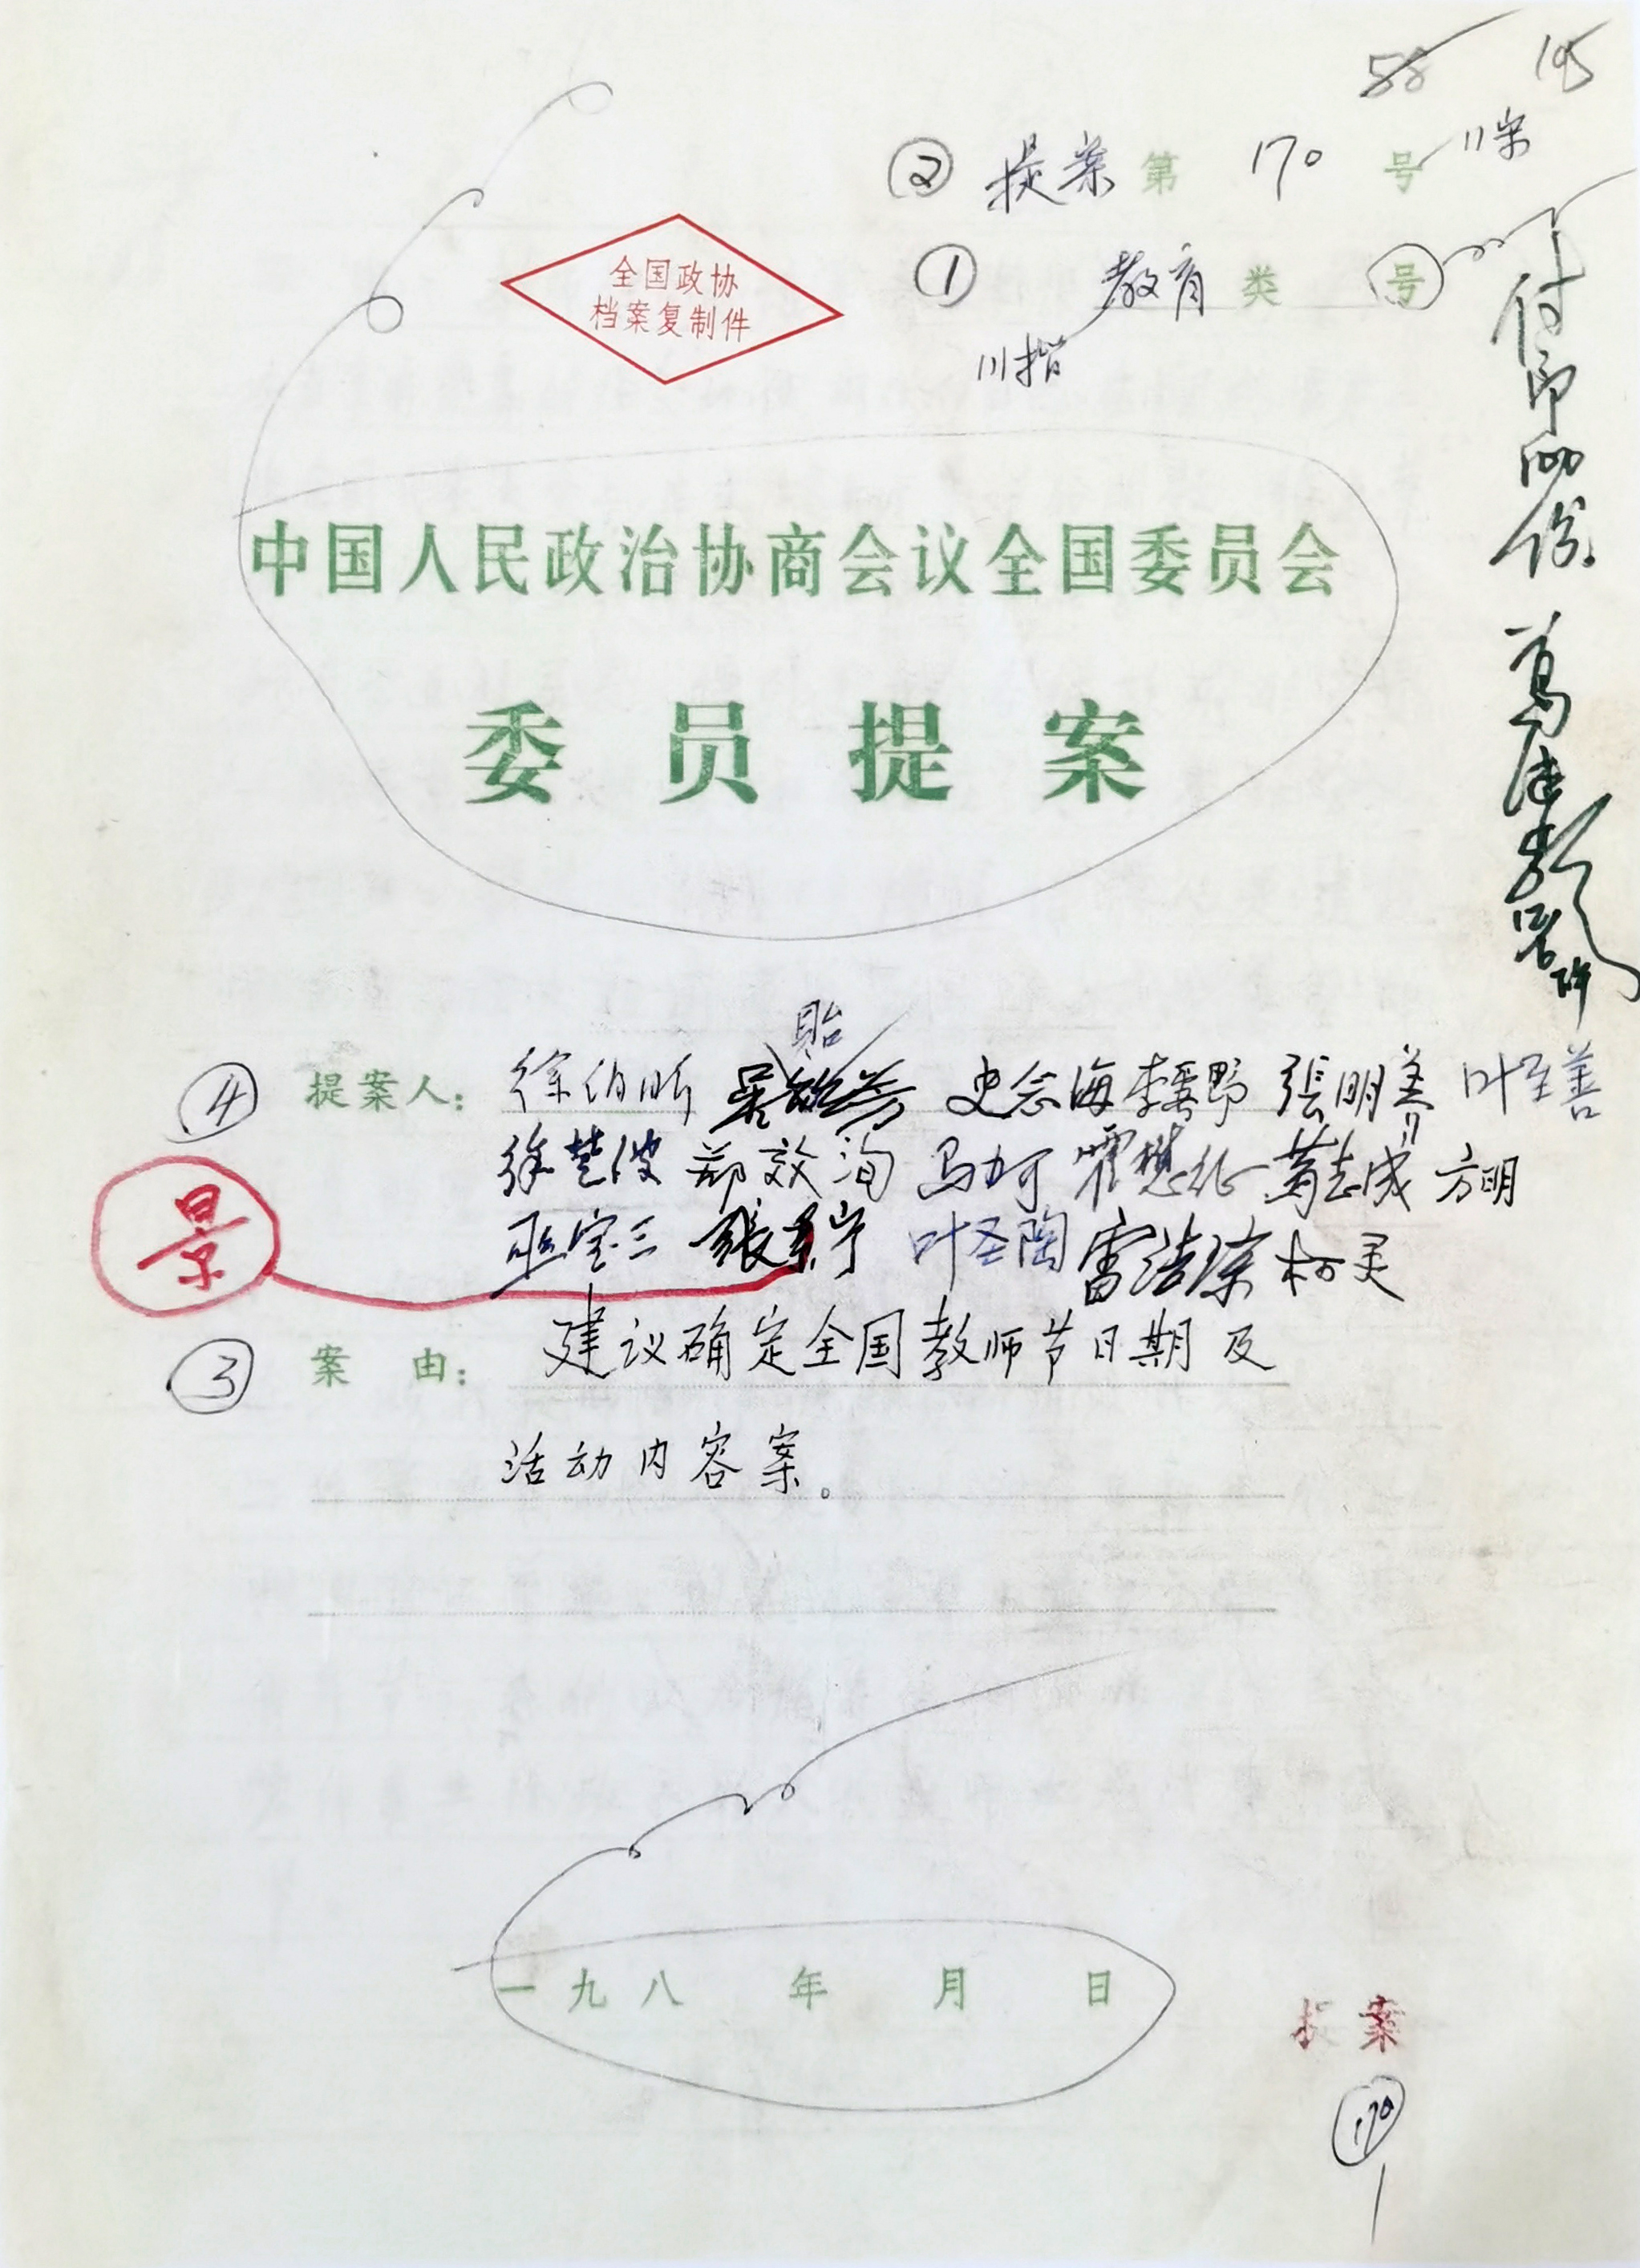 58 195
② 提案 第 170 号 11宋
① 教育 类 号
全国政协
档案复制件
11楷
付印 份
中国人民政治协商会议全国委员会
委员提案
贻
④ 提案人：徐伯昕 吴贻芳 史念海 李霁野 張明养 叶至善
徐楚波 郑效洵 马力可 霍懋征 葛志成 方明
巫宝三 張景宁 叶圣陶 雷洁琼 柯灵
景
③ 案由：建议确定全国教师节日期及
活动内容案。
一九八 年 月 日
提案
170